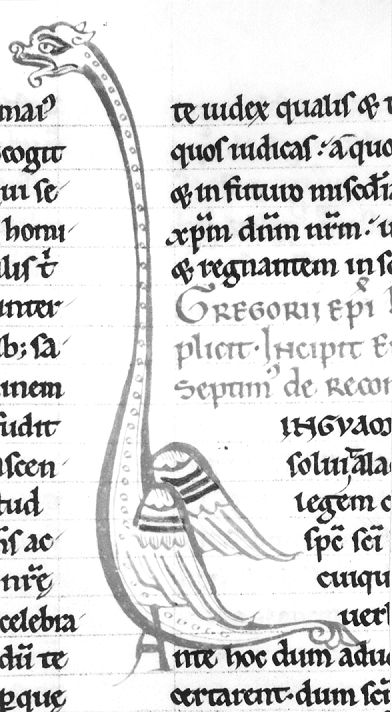 cogit
ui se
homi
lis t̄
inter
b; sa
inem
fudit
scen
tud
n̄s ac
nr̄ę
celebra
dū te
ꝑque
te iudex qualis &
quos iudicas : a quo
& in futuro
xp̄m dn̄m nr̄m.
& regnantem in se
GREGORII EP̄I
plicit. INcipit E
septim⁹ de recon
legem c
sp̄c sc̄i
cuiqu
uer
nte hoc dum adue
certarent. dum sc̄i